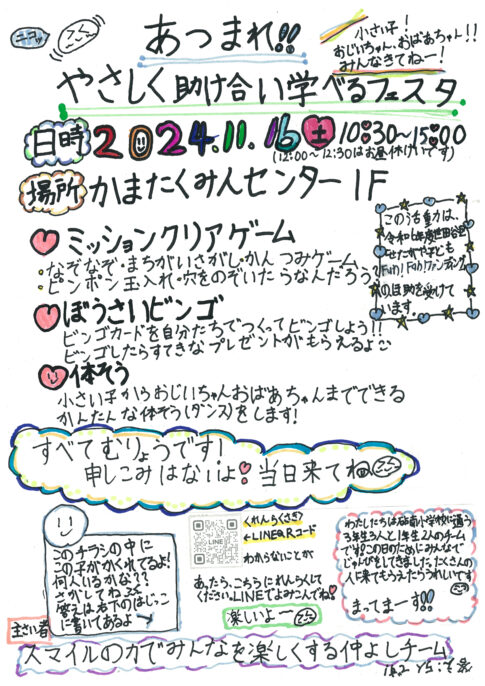 ニコッ
あつまれ!!
小さい子!
おじいちゃん、おばあちゃん!!
みんなきてねー!
やさしく助け合い学べるフェスタ
日時 2024.11.16 土 10:30~15:00
(12:00~12:30はお昼休けいです)
場所 かまたくみんセンター1F
ミッションクリアゲーム
・なぞなぞ・まちがいさがし・かんつみゲーム
・ピンポン玉入れ・穴をのぞいたらなんだろう?
このかつ動は、
令和6年度世田谷区
子ども
Fun!Fun!ファンディング
の補助を受けて
います。
ぼうさいビンゴ
ビンゴカードを自分たちでつくってビンゴしよう!!
ビンゴしたらすてきなプレゼントがもらえるよ
体そう
小さい子からおじいちゃんおばあちゃんまでできる
かんたんな体そう(ダンス)をします!
すべてむりょうです!
申しこみはないよ!当日来てね
このチラシの中に
この子がかくれてるよ!
何人いるかな??
さがしてみてね
答えは右下のはじっこ
に書いてあるよ
LINE
くれんらくさき>
←LINEQRコード
わからないことが
あったら、こちらにれんらくして
くださいLINEでよみこんでね!
楽しいよー
わたしたちは砧南小学校に通う
3年生3人と1年生2人のチーム
です!この日のためにみんなで
じゅんびをしてきました。たくさんの
人に来てもらえたらうれしいです
まってまーす!!
主さい者
スマイルの力でみんなを楽しくする仲よしチーム